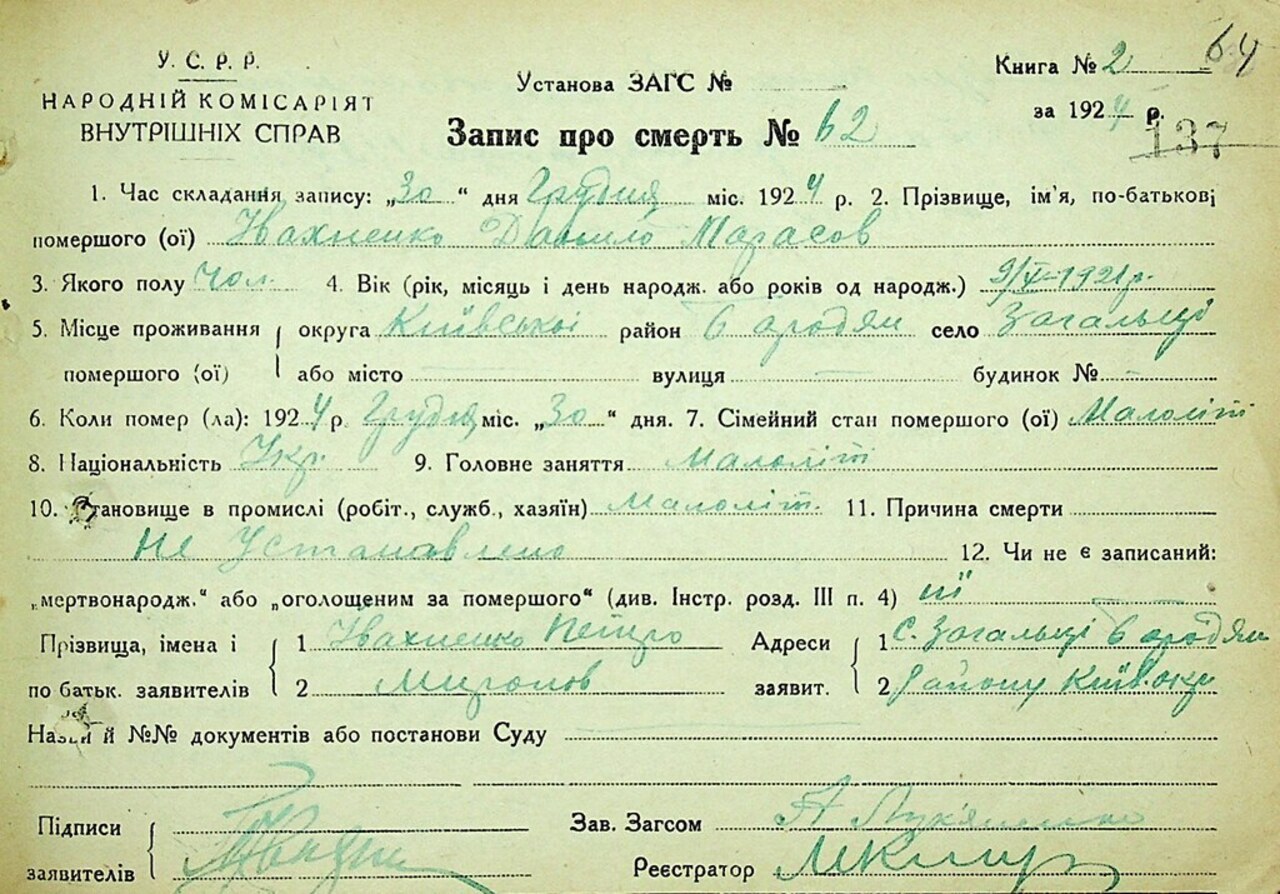 64
У. С. Р. Р.
НАРОДНІЙ КОМІСАРІЯТ
ВНУТРІШНІХ СПРАВ
Установа ЗАГС №
Книга № 2
за 1924 р.
137
Запис про смерть № 62
1. Час складання запису: „30“ дня Грудня міс. 1924 р. 2. Прізвище, ім'я, по-батькові
помершого (ої) Івахненко Данило Тарасов
3. Якого полу Чол. 4. Вік (рік, місяць і день народж. або років од народж.) 1921 р.
5. Місце проживання помершого (ої) { округа Київської район Бородян село Загальці
або місто — вулиця — будинок № -
6. Коли помер (ла): 1924 р. Грудня міс. „30“ дня. 7. Сімейний стан помершого (ої) Малоліт
8. Національність Укр. 9. Головне заняття Малоліт
10. Становище в промислі (робіт., служб., хазяїн) Малоліт. 11. Причина смерти
Не Установлено 12. Чи не є записаний:
„мертвонародж.“ або „оголощеним за помершого“ (див. Інстр. розд. III п. 4) ні
Прізвища, імена і по батьк. заявителів { 1 Івахненко Петро Адреси заявит. { 1 С. Загальці Бородян
2 Миронов 2 району Київ. окр.
Назви й №№ документів або постанови Суду
Підписи заявителів {
Зав. Загсом А Лук'яненко
Реєстратор